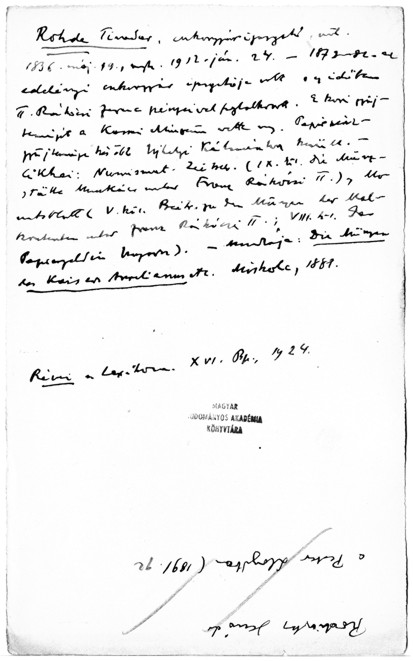 Rohde Tivadar, cukorgyár igazgató, szül.
1836. máj. 19., megh. 1912. ján. 24. — 187
edelényi cukorgyár igazgatója volt s ez időben
II. Rákóczi Ferenc pénzeivel foglalkozott. E kori gyűj-
teményét a Kassai Múzeum vette meg. Papírpénz-
gyűjteménye később került. —
Cikkei: Numismat. Zeitsch. (IX. köt. Die Münz-
stätte Munkács unter Franz Rákóczi II.), Mo-
natsblatt (V. köt. Beitr. zu den Münzen der Mal-
contenten unter Franz Rákóczi II.; VIII. köt. Das
Papiergeld in Ungarn). — Munkája: Die Münzen
des Kaisers Aurelianus etc. Miskolc, 1881.
Révai n. Lexikona. XVI. Bp., 1924.
MAGYAR
TUDOMÁNYOS AKADÉMIA
KÖNYVTÁRA
a Pesti (1891/92
Jenő dr